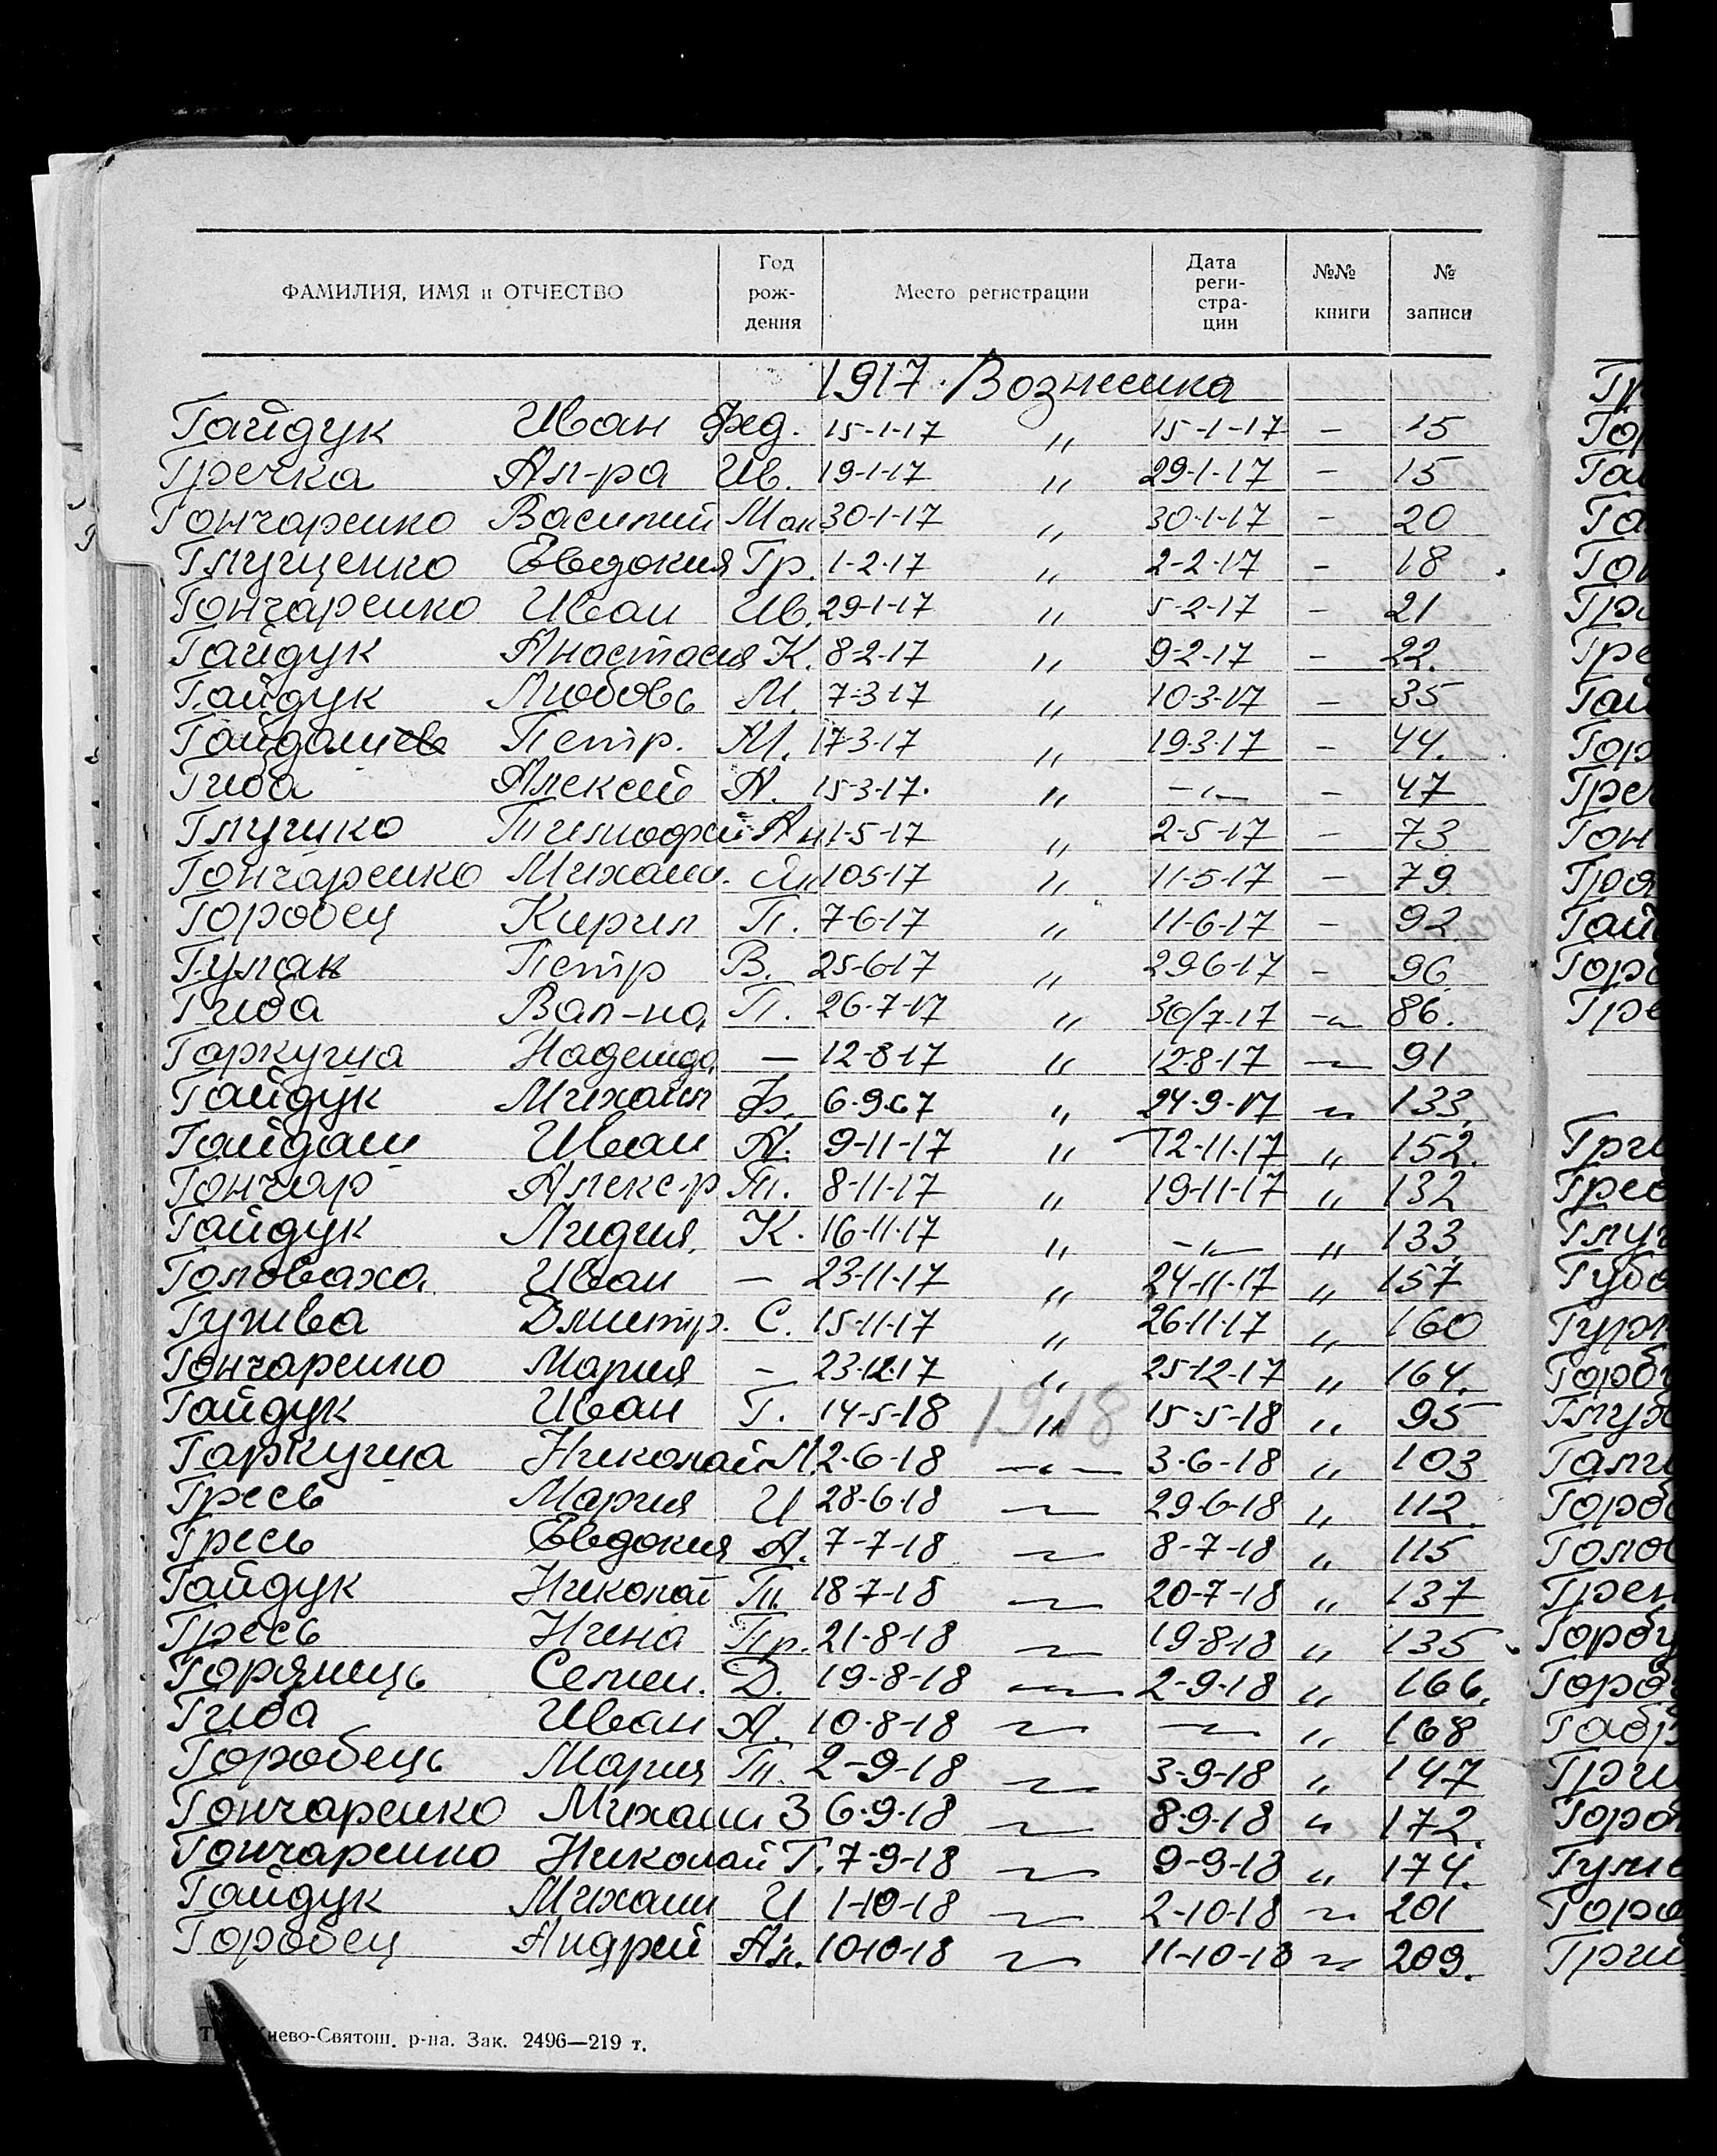 ФАМИЛИЯ, ИМЯ и ОТЧЕСТВО Год рож-дения Место регистрации Дата реги-стра-ции №№ книги № записи
1917. Вознесенка
Гайдук Иван Фед. 15-1-17 " 15-1-17 - 15
Гречка Ал-ра Ив. 19-1-17 " 29-1-17 - 15
Гончаренко Василий Мак 30-1-17 " 30-1-17 - 20
Глущенко Евдокия Гр. 1-2-17 " 2-2-17 - 18
Гончаренко Иван Ив. 29-1-17 " 5-2-17 - 21
Гайдук Анастасия К. 8-2-17 " 9-2-17 - 22.
Гайдук Любовь М. 7-3-17 " 10-3-17 - 35
Петр. М. 17-3-17 " 19-3-17 - 44.
Гиба Алексей А. 15-3-17. " -"- - 47
Глушко Тимофей Ан 1-5-17 " 2-5-17 - 73
Гончаренко Михаил. 10-5-17 " 11-5-17 - 79
Горобец Кирил П. 7-6-17 " 11-6-17 - 92
Гулак Петр В. 25-6-17 " 29-6-17 - 96
Гиба Вал-на П. 26-7-17 " 30/7-17 -"- 86.
Гаркуша Надежда - 12-8-17 " 12-8-17 -"- 91
Гайдук Михаил Ф. 6-9-17 " 24-9-17 " 133
Гайдаш Иван А. 9-11-17 " 12-11-17 " 152.
Гончар Алекс-р Т. 8-11-17 " 19-11-17 " 132
Гайдук Лидия К. 16-11-17 " -"- " 133
Головаха Иван - 23-11-17 " 24-11-17 " 157
Гужва Дмитр. С. 15-11-17 " 26-11-17 " 160
Гончаренко Мария - 23-12-17 " 25-12-17 " 164.
Гайдук Иван Г. 14-5-18 1918 " 15-5-18 " 95
Гаркуша Николай М. 2-6-18 -"- 3-6-18 " 103
Гресь Мария И 28-6-18 -"- 29-6-18 " 112
Гресь Евдокия А. 7-7-18 -"- 8-7-18 " 115
Гайдук Николай Т. 18-7-18 -"- 20-7-18 " 137
Гресь Нина Пр. 21-8-18 -"- 19-8-18 " 135
Горянець Семен. Д. 19-8-18 -"- 2-9-18 " 166.
Гиба Иван А. 10-8-18 -"- -"- " 168
Горобець Мария Т. 2-9-18 -"- 3-9-18 " 147
Гончаренко Михаил З 6-9-18 -"- 8-9-18 " 172.
Гончаренко Николай Г. 7-9-18 -"- 9-9-18 " 174.
Гайдук Михаил И 1-10-18 -"- 2-10-18 -"- 201
Горобец Андрей Ал. 10-10-18 -"- 11-10-18 -"- 209.
Киево-Святош. р-на. Зак. 2496—219 т.